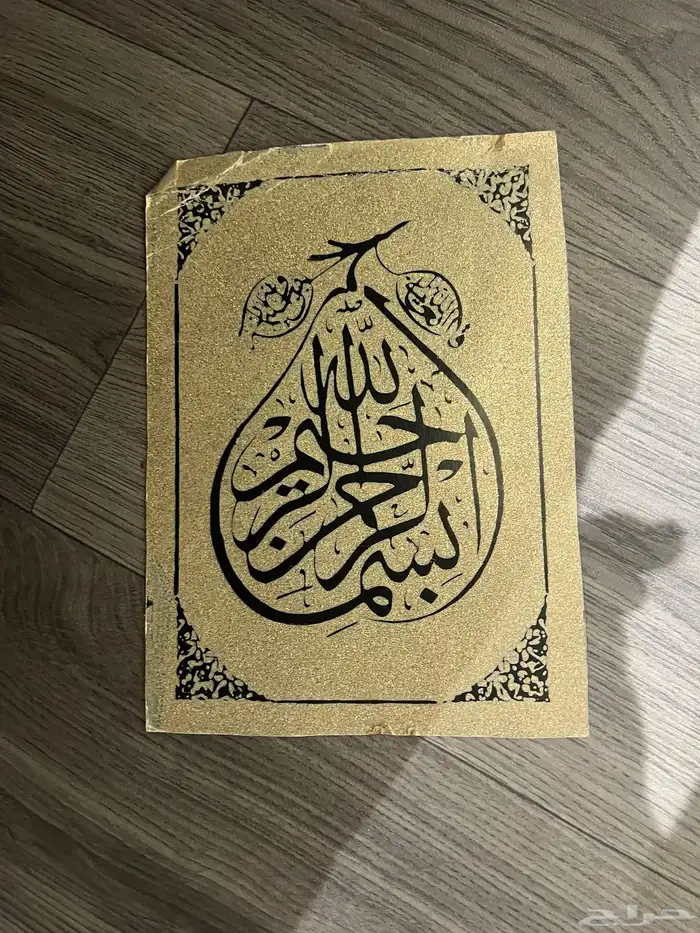 بسم الله الرحمن الرحيم
حراج